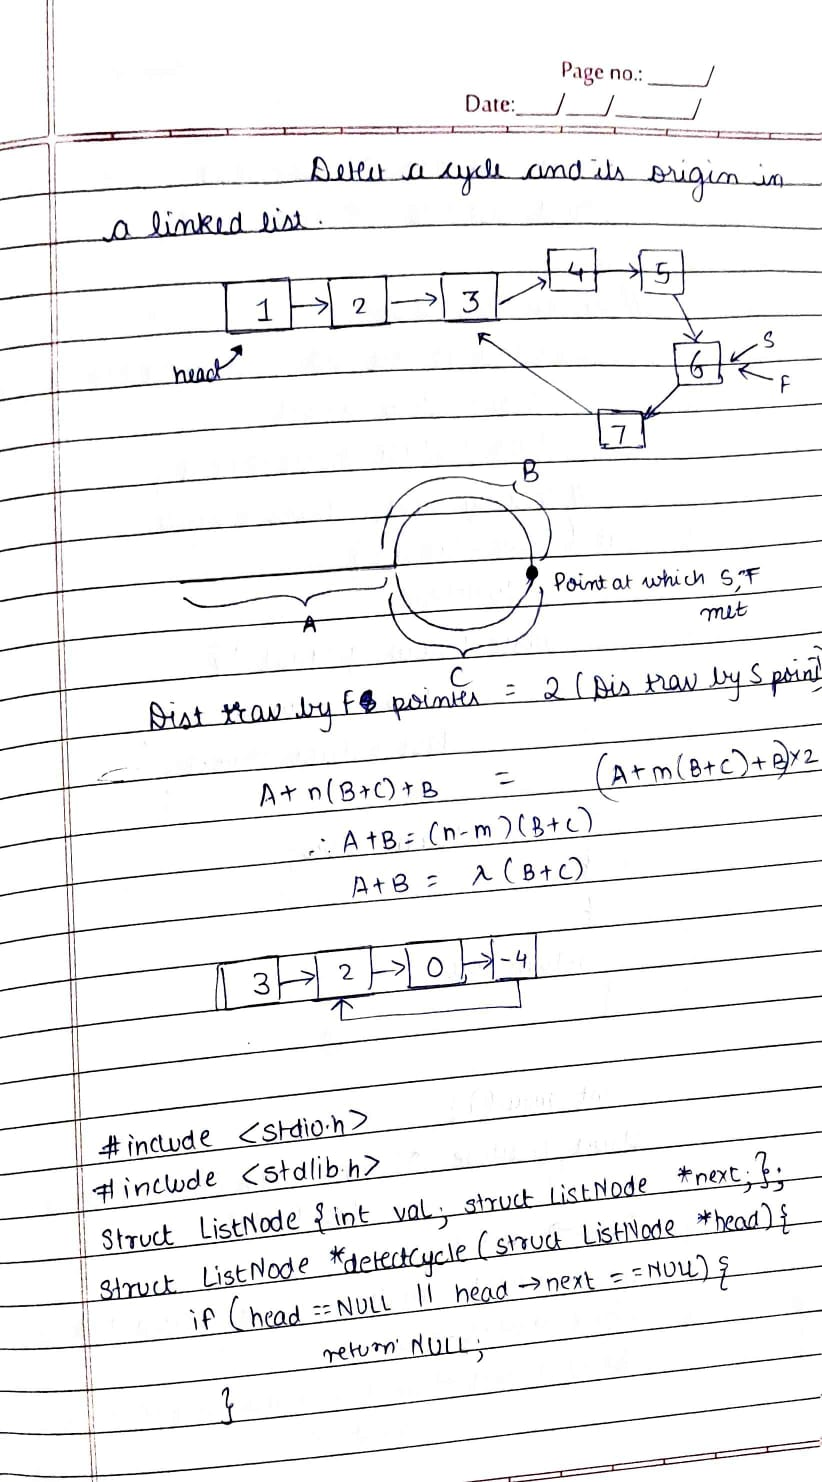 Page no.:
Date:
Detect a cycle and its origin in
a linked list.
1 → 2 → 3 → 4 → 5
head
6
S
F
7
B
Point at which S, F
met
A
C
Dist trav by F pointer = 2 (Dis trav by S point
A + n(B+C) + B = (A + m(B+C) + B)×2
∴ A + B = (n-m)(B+C)
A + B = λ (B+C)
3 → 2 → 0 → -4
#include <stdio.h>
#include <stdlib.h>
Struct ListNode {int val; struct ListNode *next;};
Struct ListNode *detectCycle (struct ListNode *head){
if (head == NULL || head → next == NULL) {
return NULL;
}